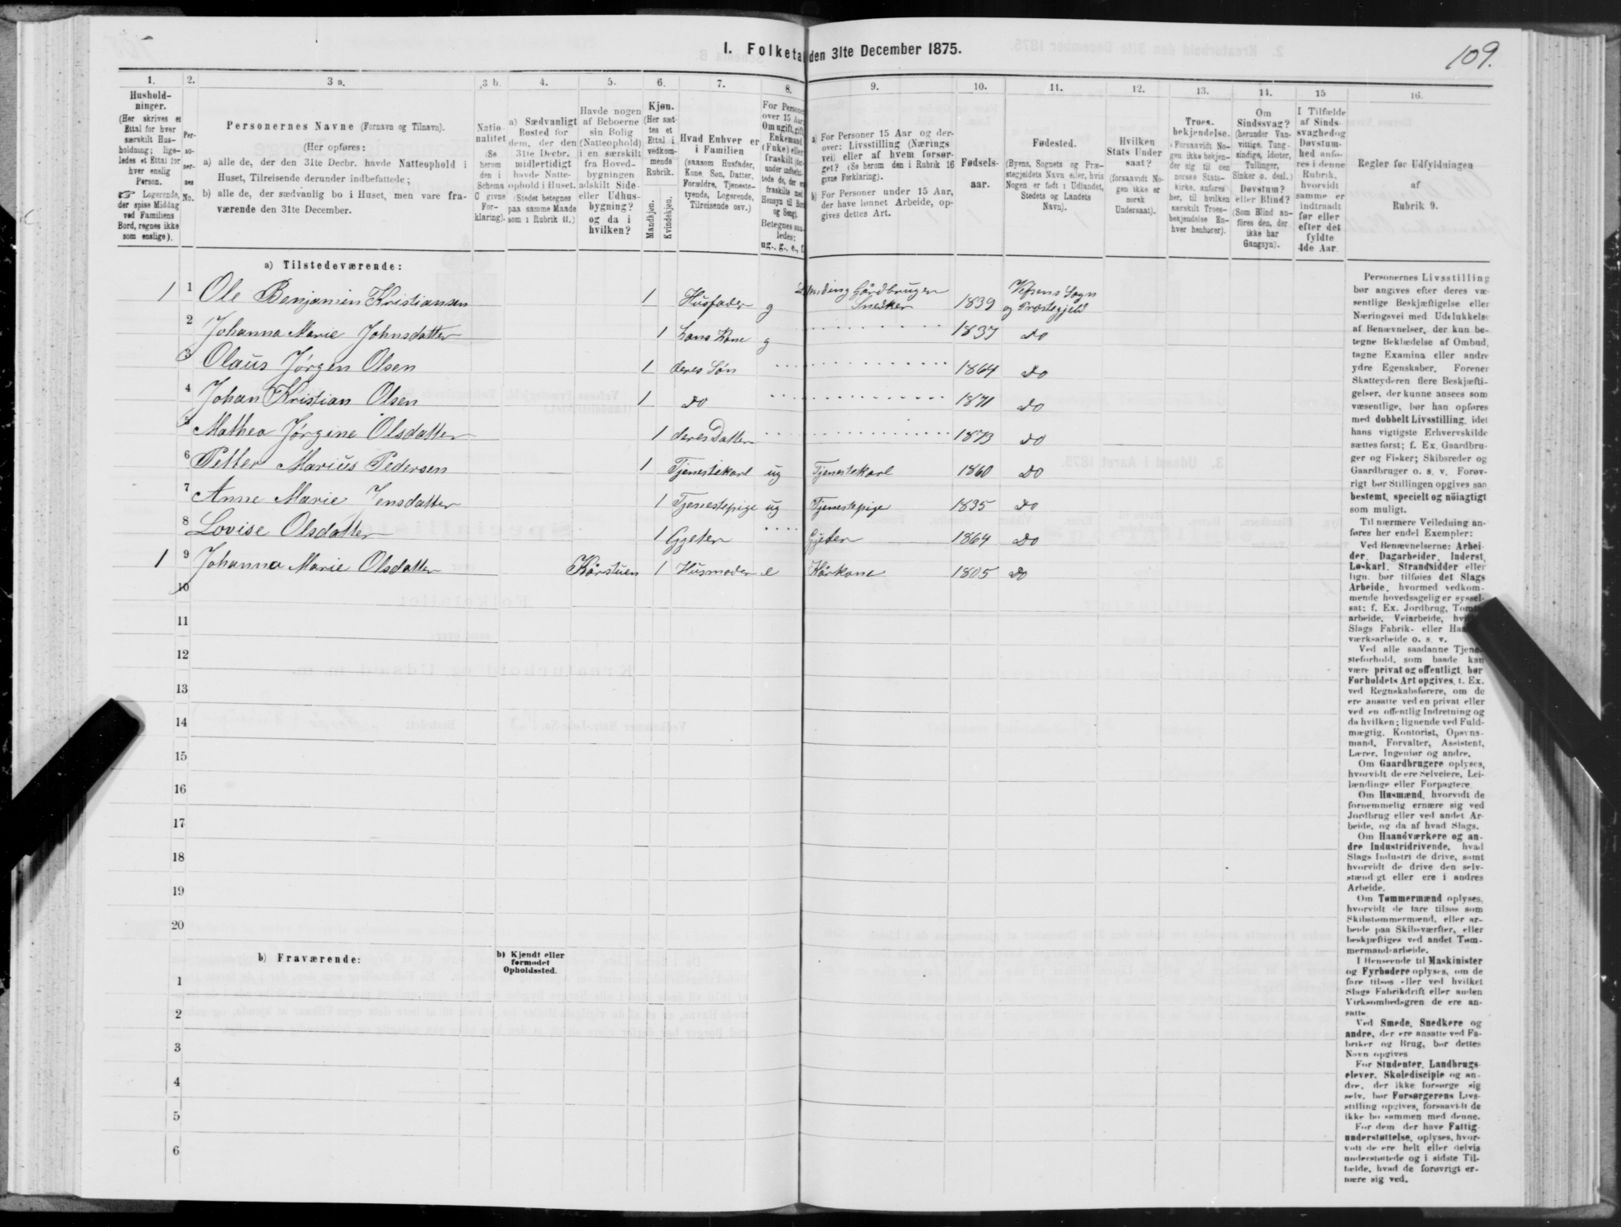 109.
I. Folketa den 31te December 1875.
1. 2. 3 a. 3 b. 4. 5. 6. 7. 8. 9. 10. 11. 12. 13. 14. 15 16.
Hushold-
ninger.
(Her skrives et
Ettal for hver
særskilt Hus-
holdning; lige-
ledes et Ettal for
hver enslig
Person.
☞ Logerende,
der spise Middag
ved Familiens
Bord, regnes ikke
som enslige).
Per-
so-
ner-
nes
No.
Personernes Navne (Fornavn og Tilnavn).
(Her opføres:
a) alle de, der den 31te Decbr. havde Natteophold i
Huset, Tilreisende derunder indbefattede;
b) alle de, der sædvanlig bo i Huset, men vare fra-
værende den 31te December.
Natio
nalitet
(Se
herom
den i
Schema
O givne
For-
klaring).
a) Sædvanligt
Bosted for
dem, der den
31te Decbr.
midlertidigt
havde Natte-
ophold i Huset.
(Stedet betegnes
paa samme Maade
som i Rubrik 11.)
Havde nogen
af Beboerne
sin Bolig
(Natteophold)
i en særskilt
fra Hoved-
bygningen
adskilt Side-
eller Udhus-
bygning?
og da i
hvilken?
Kjøn.
(Her sæt-
tes et
Ettal i
vedkom-
mende
Rubrik.
Mandkjøn.
Kvindekjøn.
Hvad Enhver er
i Familien
(saasom Husfader,
Kone, Søn, Datter,
Forældre, Tjeneste-
tyende, Logerende,
Tilreisende osv.)
For Persone
over 15 Aar
Om ugift, gift
Enkemand
(Enke) eller
fraskilt
Betegnes saa-
ledes:
ug., g., e., f.
a) For Personer 15 Aar og der-
over: Livsstilling (Nærings
vei) eller af hvem forsør-
get? (Se herom den i Rubrik 16
givne Forklaring).
b) For Personer under 15 Aar,
der have lønnet Arbeide, op-
gives dettes Art.
Fødsels-
aar.
Fødested.
(Byens, Sognets og Præ-
stegjeldets Navn eller, hvis
Nogen er født i Udlandet,
Stedets og Landets
Navn).
Hvilken
Stats Under
saat?
(forsaavidt No-
gen ikke er
norsk
Undersaat).
Troes-
bekjendelse.
(Forsaavidt No-
gen ikke bekjen-
der sig til den
norske Stats-
kirke, anføres
her, til hvilken
særskilt Troes-
bekjendelse En-
hver henhører).
Om
Sindssvag?
(herunder Van-
vittige, Tung-
sindige, Idioter,
Tullinger,
Sinker o. desl.)
Døvstum?
eller Blind?
(Som Blind an-
føres den, der
ikke har
Gangsyn).
I Tilfælde
af Sinds-
svaghed og
Døvstum-
hed anfø-
res i denne
Rubrik,
hvorvidt
samme er
indtraadt
før eller
efter det
fyldte
4de Aar.
Regler for Udfyldningen
af
Rubrik 9.
a) Tilstedeværende:
1 1 Ole Benjamin Kristiansen 1 Husfader g Gårdbruger Snedker 1839 Vefsens Sogn og Præstegjeld
2 Johanna Marie Johnsdatter 1 hans Kone g 1837 do
3 Olaus Jørgen Olsen 1 deres Søn 1864 do
4 Johan Kristian Olsen 1 do 1871 do
5 Mathea Jørgine Olsdatter 1 deres Datter 1873 do
6 Petter Marius Pedersen 1 Tjenestekarl ug Tjenestekarl 1860 do
7 Anne Marie Jensdatter 1 Tjenestepige ug Tjenestepige 1835 do
8 Lovise Olsdatter 1 Gjeter Gjeter 1864 do
1 9 Johanna Marie Olsdatter Kårstuen 1 Husmoder e Kårkone 1805 do
10
11
12
13
14
15
16
17
18
19
20
b) Fraværende:
b) Kjendt eller
formodet
Opholdssted.
1
2
3
4
5
6
Personernes Livsstilling
bør angives efter deres væ-
sentlige Beskjæftigelse eller
Næringsvei med Udelukkelse
af Benævnelser, der kun be-
tegne Beklædelse af Ombud,
tagne Examina eller andre
ydre Egenskaber. Forener
Skatteyderen flere Beskjæfti-
gelser, der kunne ansees som
væsentlige, bør han opføres
med dobbelt Livsstilling, idet
hans vigtigste Erhvervskilde
sættes først; f. Ex. Gaardbru-
ger og Fisker; Skibsreder og
Gaardbruger o. s. v. Forøv-
rigt bør Stillingen opgives saa
bestemt, specielt og nøiagtigt
som muligt.
Til nærmere Veiledning an-
føres her endel Exempler:
Ved Benævnelserne: Arbei-
der, Dagarbeider, Inderst,
Løskarl, Strandsidder eller
lign. bør tilføies det Slags
Arbeide, hvormed vedkom-
mende hovedsagelig er syssel-
sat; f. Ex. Jordbrug,
arbeide, Veiarbeide,
Slags Fabrik- eller
værksarbeide o. s. v.
Ved alle saadanne
steforhold, som baade kan
være privat og offentligt, bør
Forholdets Art opgives, t. Ex.
ved Regnskabsførere, om de
ere ansatte ved en privat eller
ved en offentlig Indretning og
da hvilken; lignende ved Fuld-
mægtig, Kontorist, Opsyns-
mand, Forvalter, Assistent,
Lærer, Ingeniør og andre.
Om Gaardbrugere oplyses,
hvorvidt de ere Selveiere, Lei-
lændinge eller Forpagtere.
Om Husmænd, hvorvidt de
fornemmelig ernære sig ved
Jordbrug eller ved andet Ar-
beide, og da af hvad Slags.
Om Haandværkere og an-
dre Industridrivende, hvad
Slags Industri de drive, samt
hvorvidt de drive den selv-
stændigt eller ere i andres
Arbeide.
Om Tømmermænd oplyses,
hvorvidt de fare tilsøs som
Skibstømmermænd, eller ar-
beide paa Skibsværfter, eller
beskjæftiges ved andet Tøm-
mermand-arbeide.
I Henseende til Maskinister
og Fyrbødere oplyses, om de
fare tilsøs eller ved hvilket
Slags Fabrikdrift eller anden
Virksomhedsgren de ere an-
satte.
Ved Smede, Snedkere og
andre, der ere ansatte ved Fa-
briker og Brug, bør dettes
Navn opgives
For Studenter, Landbrugs-
elever, Skoledisciple og an-
dre, der ikke forsørge sig
selv, bør Forsørgerens Livs-
stilling opgives, forsaavidt de
ikke bo sammen med denne.
For dem, der have Fattig-
understøttelse, oplyses, hvor-
vidt de ere helt eller delvis
understøttede og i sidste Til-
fælde, hvad de forøvrigt er-
nære sig ved.